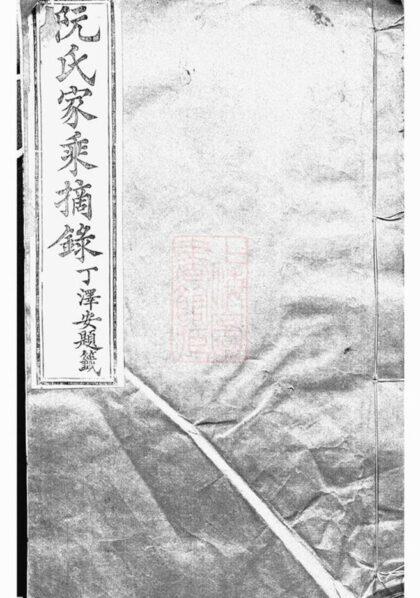 阮氏家乘摘錄
丁澤安題籤